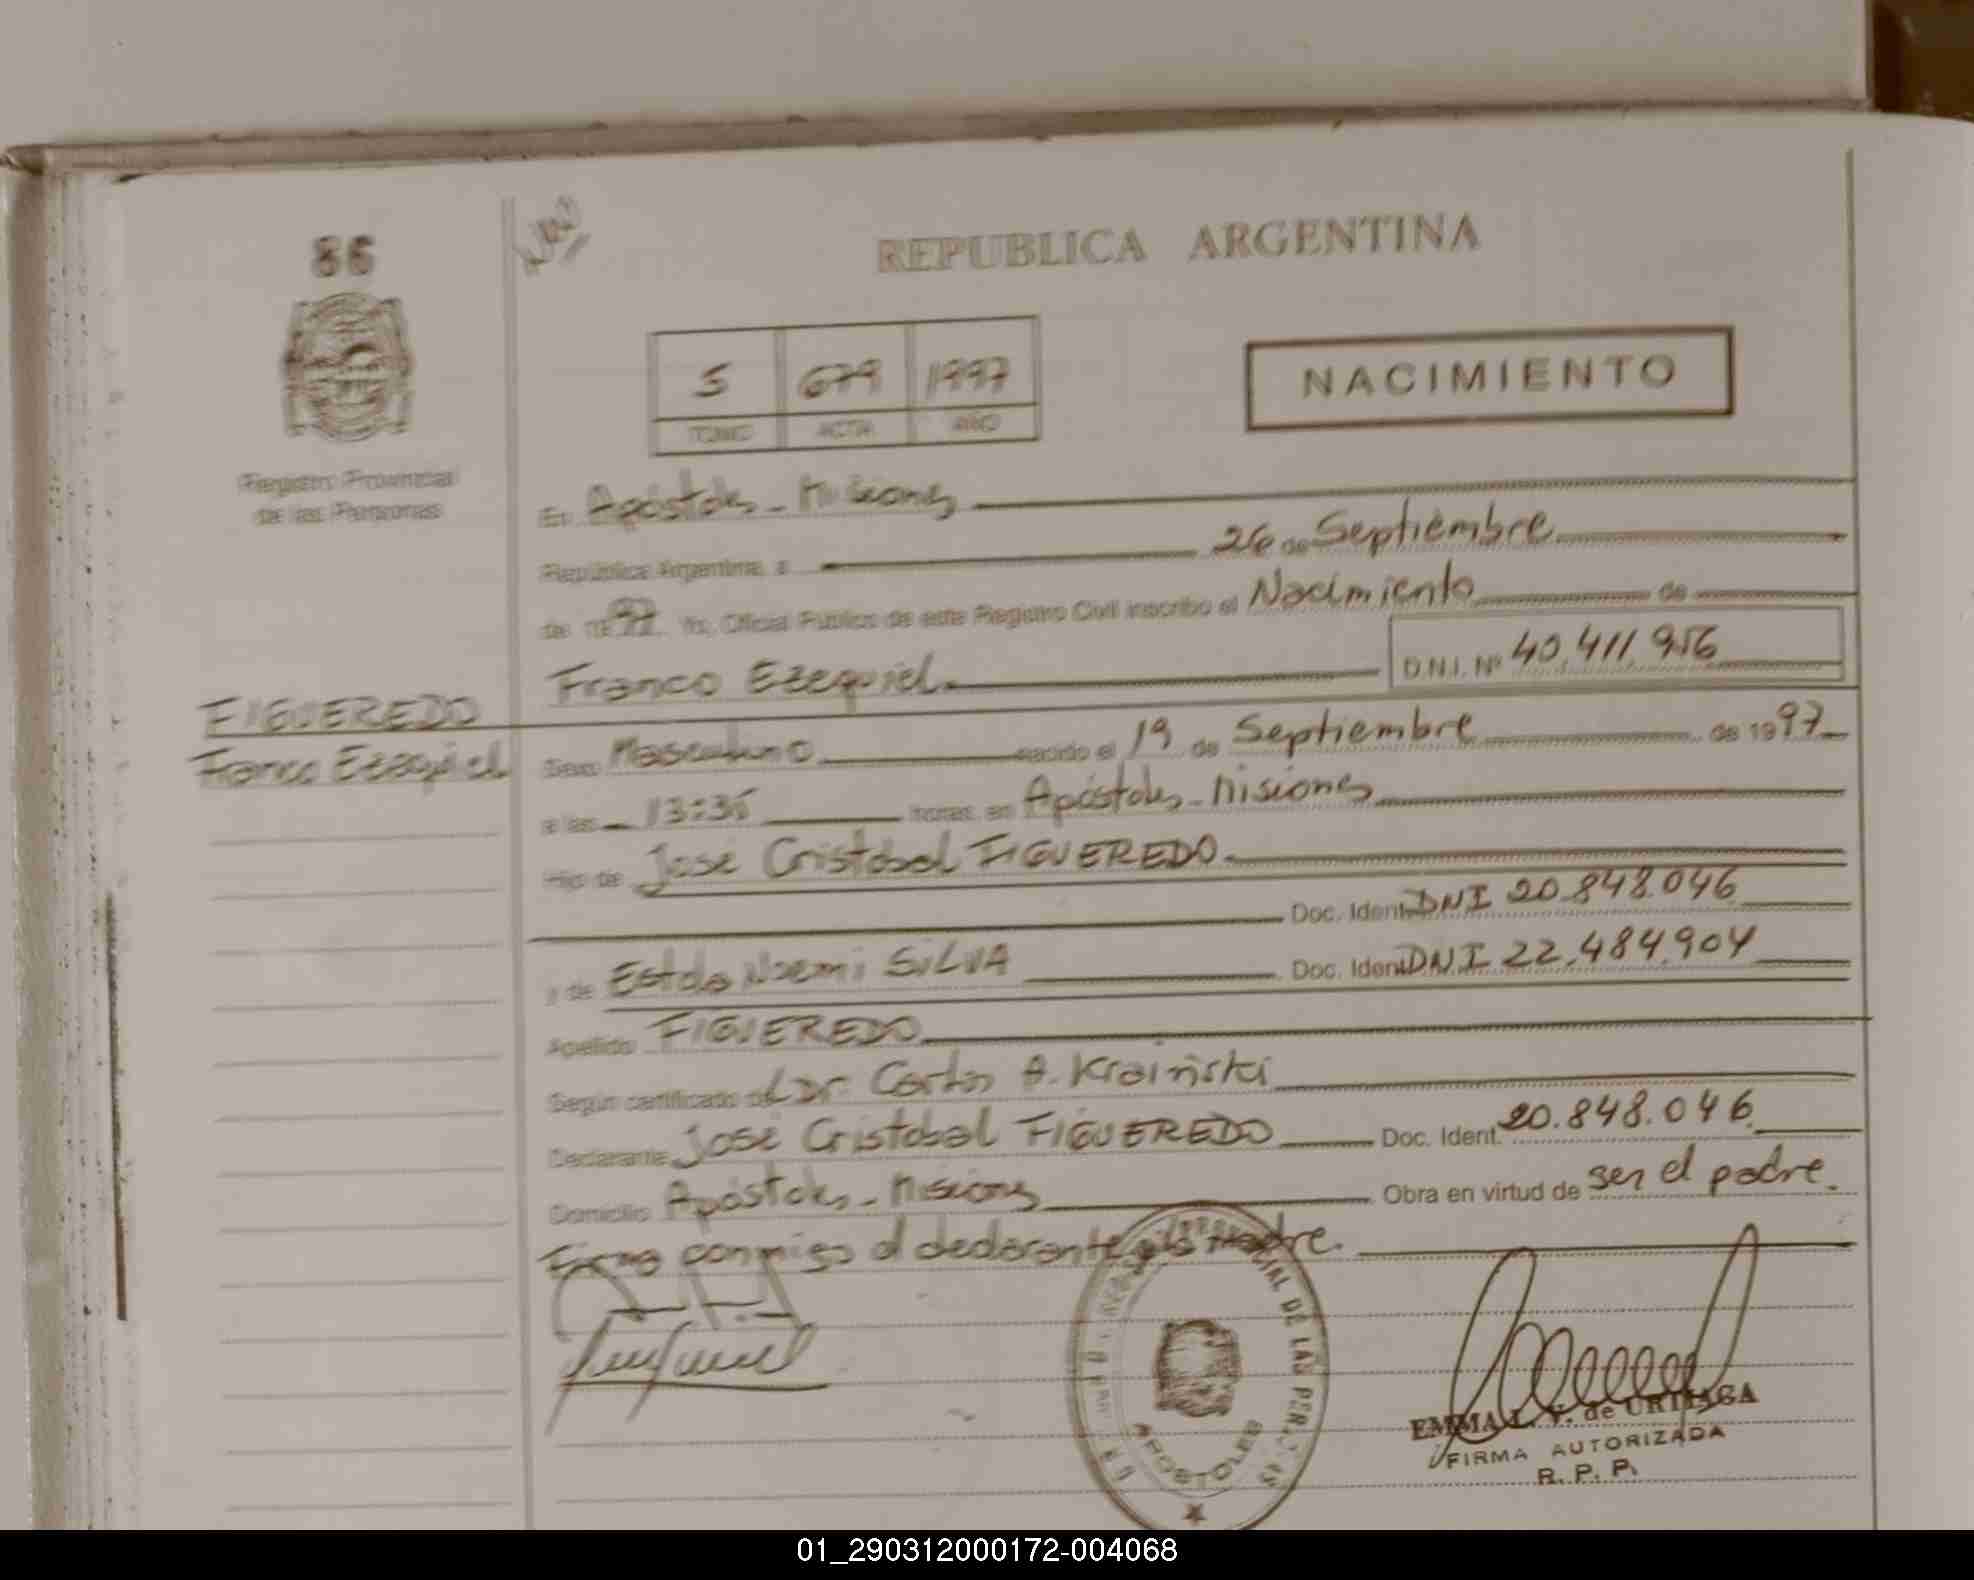 86
REPUBLICA ARGENTINA
5 679 1997
TOMO ACTA AÑO
NACIMIENTO
Registro Provincial
de las Personas
En Apóstoles - Misiones
República Argentina, a 26 de Septiembre
de 1997. Yo, Oficial Público de este Registro Civil inscribo el Nacimiento de
Franco Ezequiel. D.N.I. Nº 40.411.956
FIGUEREDO
Franco Ezequiel
Sexo Masculino nacido el 19 de Septiembre de 1997
a las 13:35 horas, en Apóstoles - Misiones
Hijo de José Cristobal FIGUEREDO.
Doc. Ident. DNI 20.848.046
y de Noemi SILVA Doc. Ident. DNI 22.484.904
Apellido FIGUEREDO
Según certificado de Dr. Carlos A. Krainski
Declarante José Cristobal FIGUEREDO Doc. Ident. 20.848.046.
Domicilio Apóstoles - Misiones Obra en virtud de ser el padre.
Firma conmigo el declarante y la Madre.
REGISTRO PROVINCIAL DE LAS PERSONAS
APOSTOLES
EMMA L. V. de URTIAGA
FIRMA AUTORIZADA
R. P. P.
01_290312000172-004068